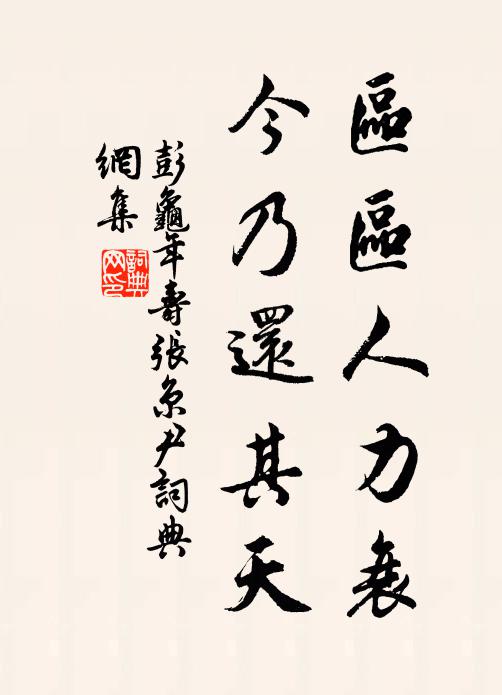 區區人力衰
今乃還其天
彭龜年壽張京尹詞典
網集
詞典
网印